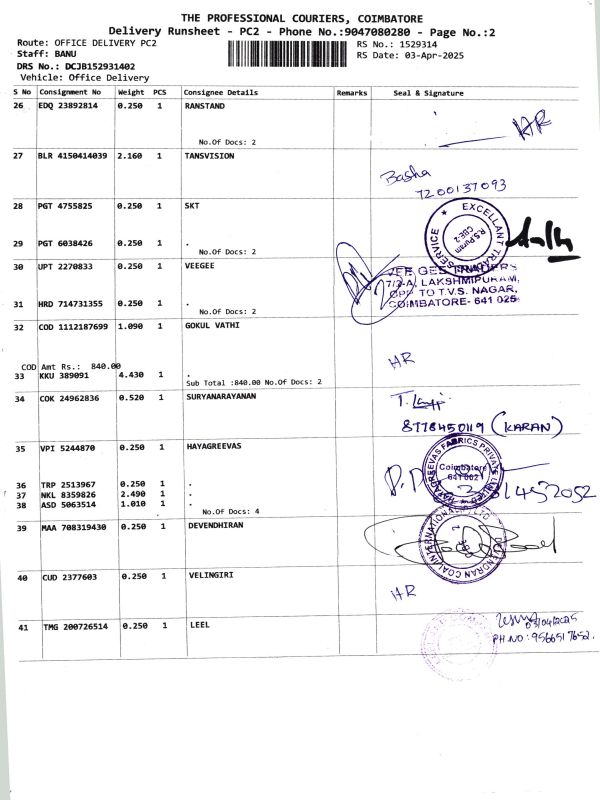 THE PROFESSIONAL COURIERS, COIMBATORE
Delivery Runsheet - PC2 - Phone No.:9047080280 - Page No.:2
Route: OFFICE DELIVERY PC2
RS No.: 1529314
Staff: BANU
RS Date: 03-Apr-2025
DRS No.: DCJB152931402
Vehicle: Office Delivery
S No Consignment No Weight PCS Consignee Details Remarks Seal & Signature
26 EDQ 23892814 0.250 1 RANSTAND
HR
No.Of Docs: 2
27 BLR 4150414039 2.160 1 TANSVISION
Basha
7200137093
28 PGT 4755825 0.250 1 SKT
EXCELLANT
R.S.Puram
CBE-2
SERVICE
29 PGT 6038426 0.250 1 .
No.Of Docs: 2
30 UPT 2270833 0.250 1 VEEGEE
7/2-A, LAKSHMIPURAM,
OPP TO T.V.S. NAGAR,
COIMBATORE- 641 025
31 HRD 714731355 0.250 1 .
No.Of Docs: 2
32 COD 1112187699 1.090 1 GOKUL VATHI
HR
COD Amt Rs.: 840.00
33 KKU 389091 4.430 1 .
Sub Total :840.00 No.Of Docs: 2
34 COK 24962836 0.520 1 SURYANARAYANAN
8778450119 (KARAN)
35 VPI 5244870 0.250 1 HAYAGREEVAS
HAYAGREEVAS FABRICS PRIVATE LIMITED
Coimbatore
641 002
36 TRP 2513967 0.250 1 .
37 NKL 8359826 2.490 1 .
38 ASD 5063514 1.010 1 .
No.Of Docs: 4
39 MAA 708319430 0.250 1 DEVENDHIRAN
COAL INTERNATIONAL
40 CUD 2377603 0.250 1 VELINGIRI
HR
41 TMG 200726514 0.250 1 LEEL
03/04/2025
PH NO: 9566517652.